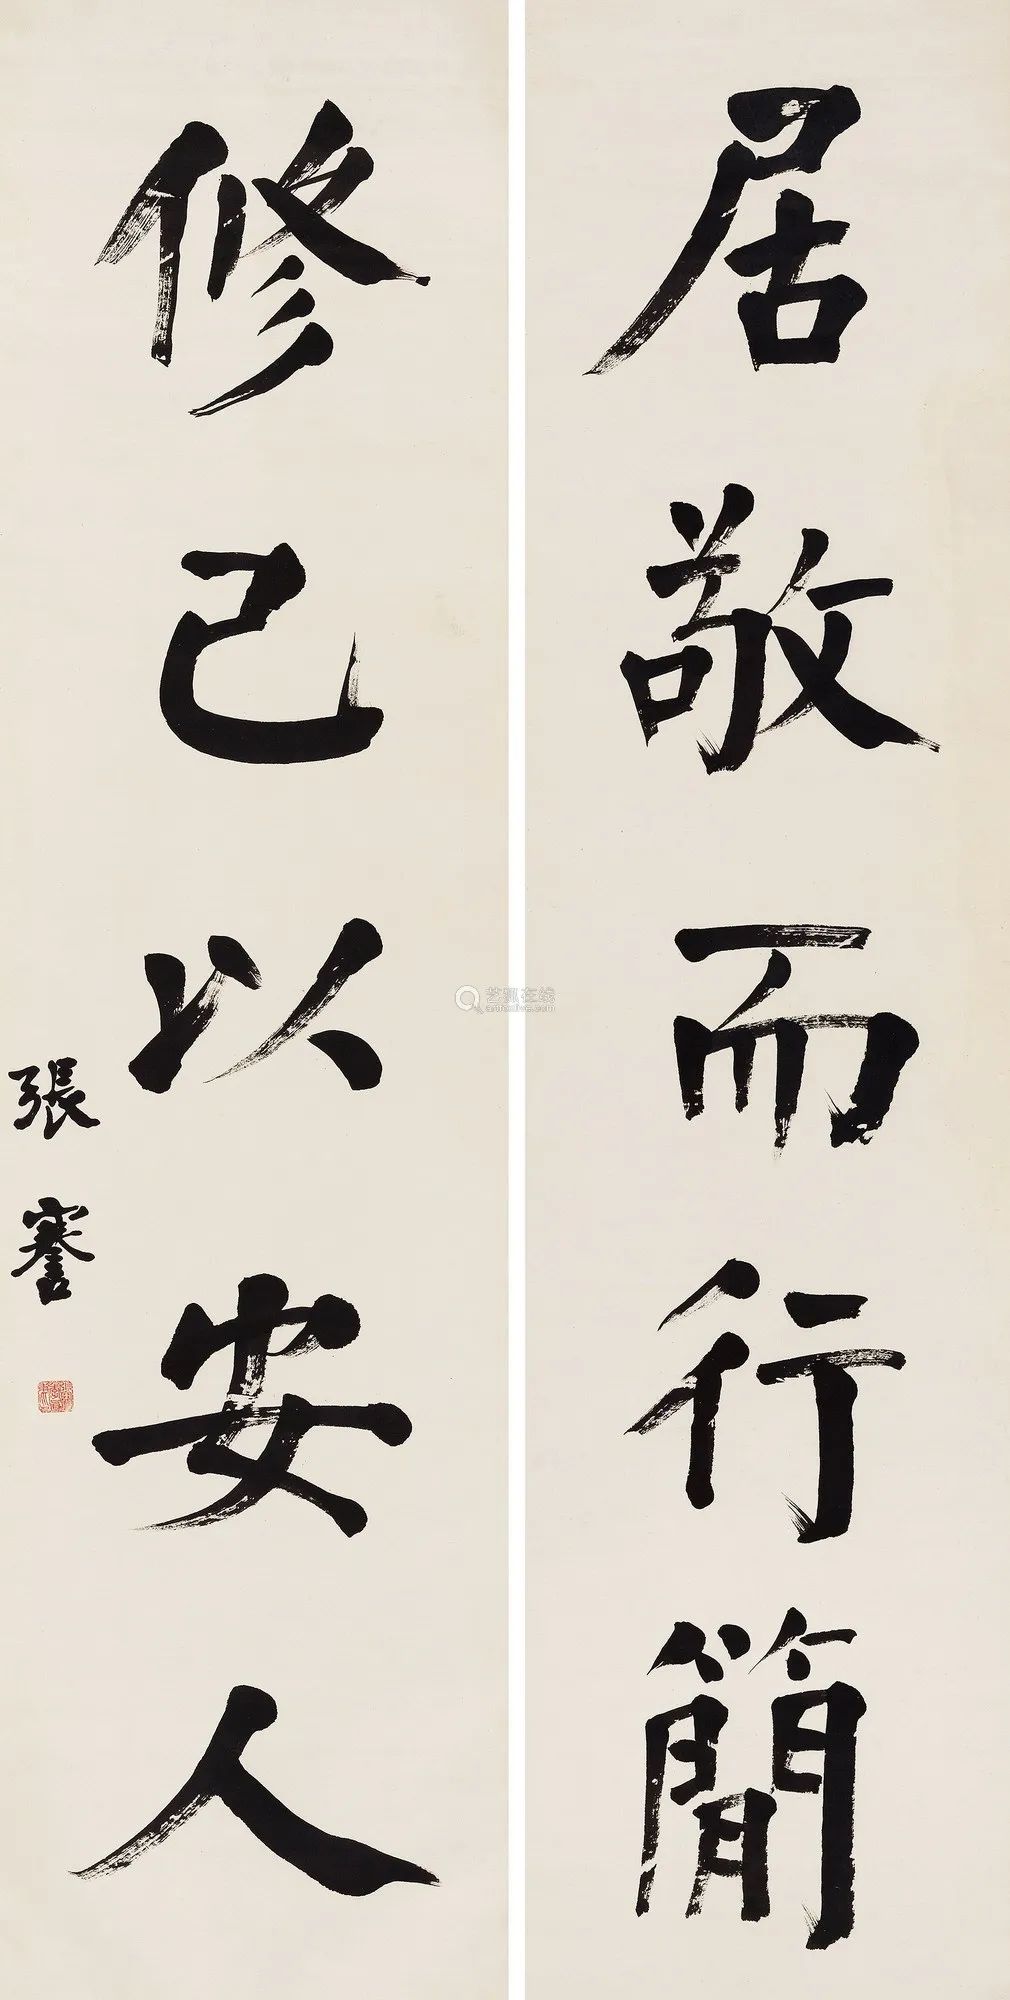 居敬而行簡
修己以安人
張謇
艺狐在线
artfoxlive.com